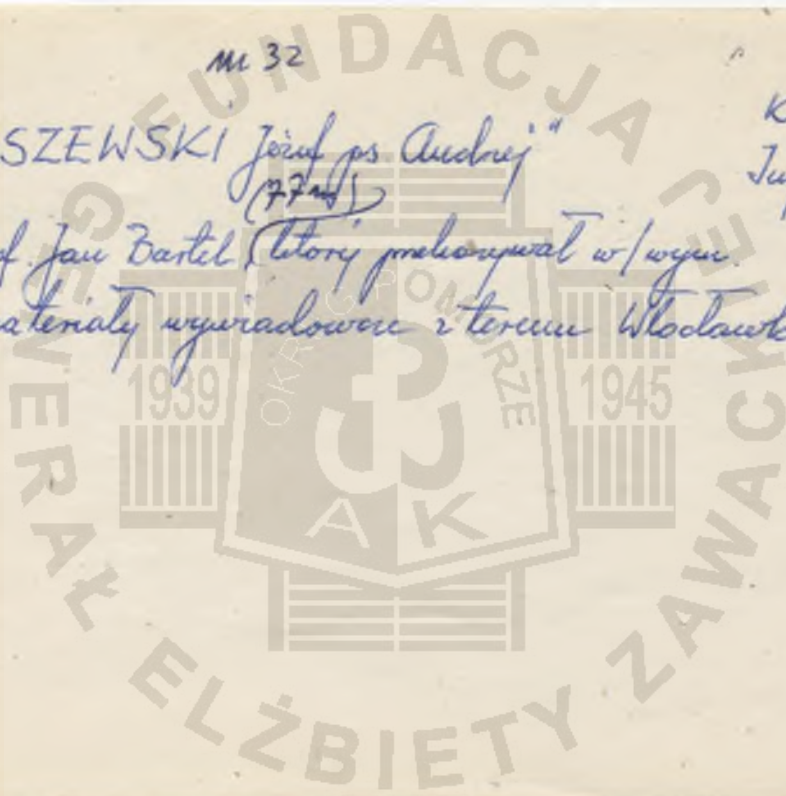 m 32
SZEWSKI Józef ps Andrzej"
(77 m)
f. Jan Bartel (który przekazywał w/wym.
ateriały wywiadowcze z terenu Włocławk
FUNDACJA GENERAŁ ELŻBIETY ZAWACKIEJ
OKRĘG POMORZE
1939 1945
A K